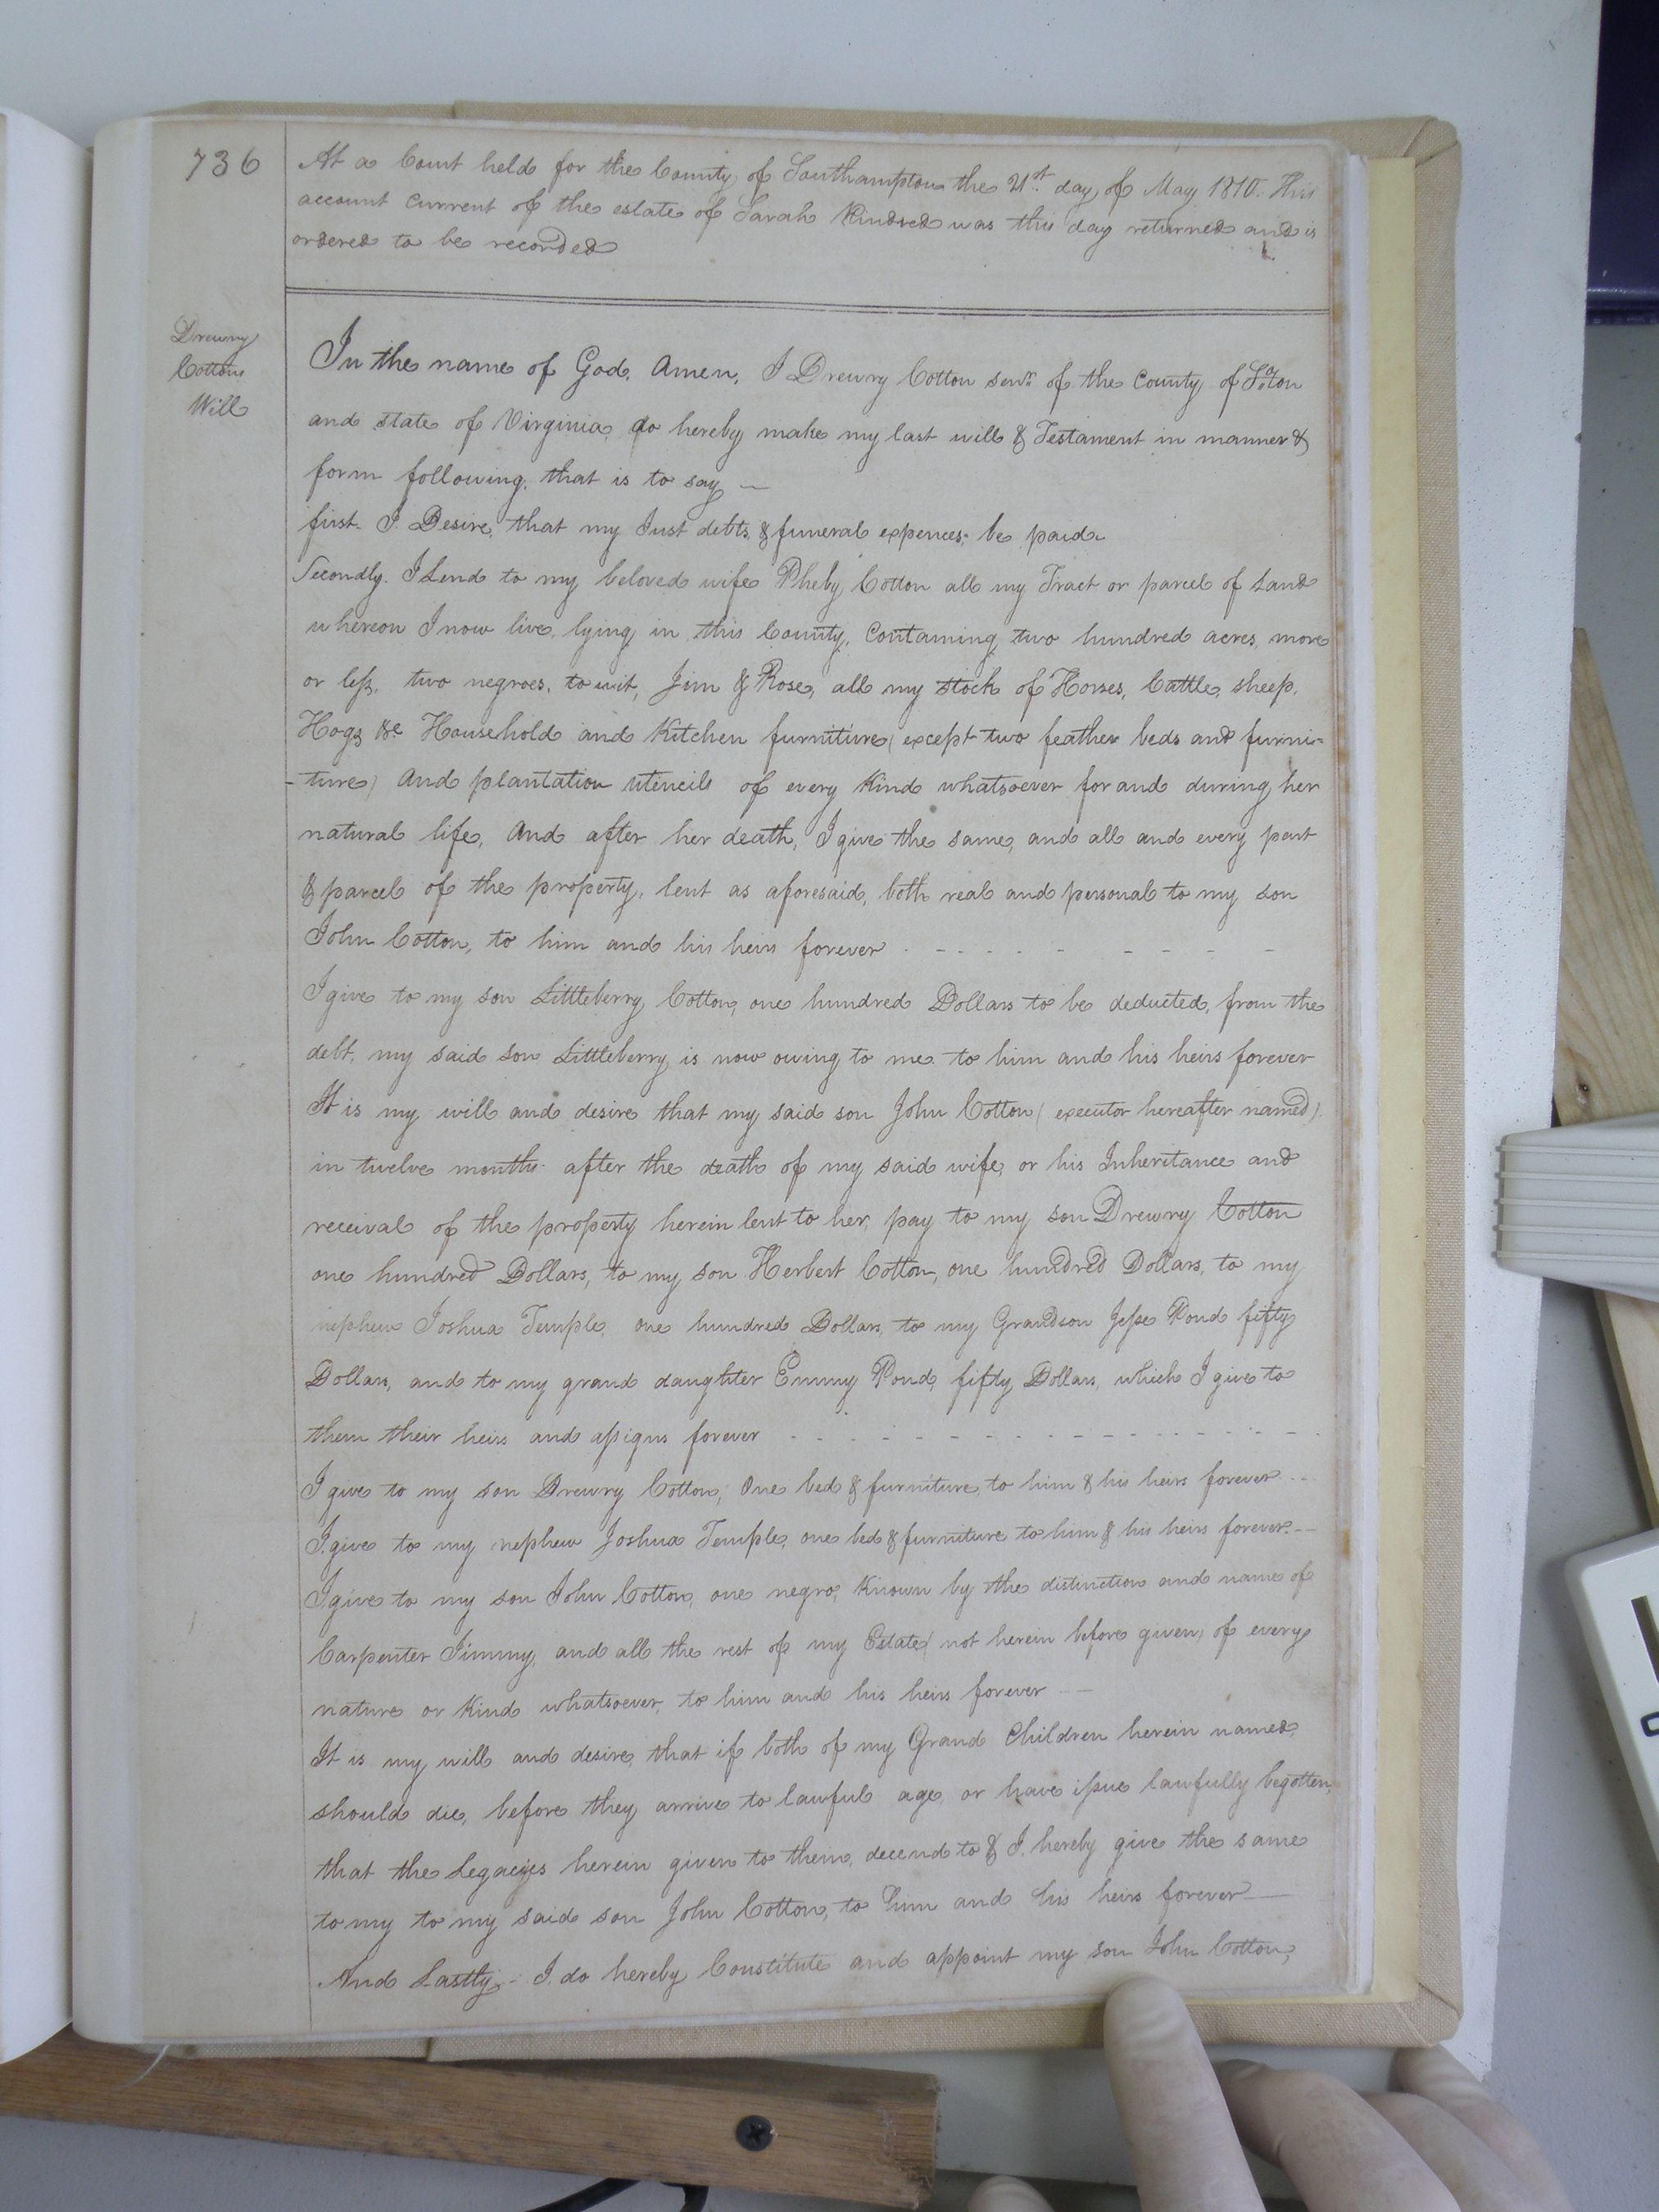 736
At a Court held for the County of Southampton the 21st day of May 1810. This
account current of the estate of Sarah Kindred was this day returned and is
ordered to be recorded
Drewry
Cottons
Will
In the name of God, Amen, I Drewry Cotton senr. of the County of Soton
and state of Virginia, do hereby make my last will & Testament in manner &
form following, that is to say —
first. I Desire, that my Just debts, & funeral expences, be paid
Secondly. I Lend to my beloved wife Pheby Cotton all my Tract or parcel of Land
whereon I now live, lying in this County, Containing two hundred acres, more
or less, two negroes, to wit, Jim & Rose, all my stock of Horses, Cattle, sheep,
Hogs &c Household and Kitchen furniture (except two feather beds and furni-
-ture) And plantation utencils of every Kind whatsoever for and during her
natural life, And after her death, I give the same, and all and every part
& parcel of the property, lent as aforesaid, both real and personal to my son
John Cotton, to him and his heirs forever - - - - - - - - -
I give to my son Littleberry Cotton, one hundred Dollars to be deducted, from the
debt, my said son Littleberry is now owing to me. to him and his heirs forever
It is my will and desire that my said son John Cotton (executor hereafter named)
in twelve months after the death of my said wife, or his Inheritance and
receival of the property herein lent to her, pay to my son Drewry Cotton
one hundred Dollars, to my son Herbert Cotton, one hundred Dollars, to my
nephew Joshua Temple, one hundred Dollars, to my Grandson Jesse Pond fifty
Dollars, and to my grand daughter Emmy Pond, fifty Dollars, which I give to
them their heirs and assigns forever - - - - - - - - - - - - - - - -
I give to my son Drewry Cotton, One bed & furniture, to him & his heirs forever - - -
I give to my nephew Joshua Temple, one bed & furniture to him & his heirs forever. - -
I give to my son John Cotton, one negro, Known by the distinction and name of
Carpenter Jimmy, and all the rest of my Estate (not herein before given) of every
nature or Kind whatsoever, to him and his heirs forever — —
It is my will and desire, that if both of my Grand Children herein named,
should die, before they arrive to lawful age, or have issue lawfully begotten,
that the Legacies herein given to them, decend to & I hereby give the same
to my to my said son John Cotton, to him and his heirs forever —
And Lastly - I do hereby Constitute and appoint my son John Cotton,